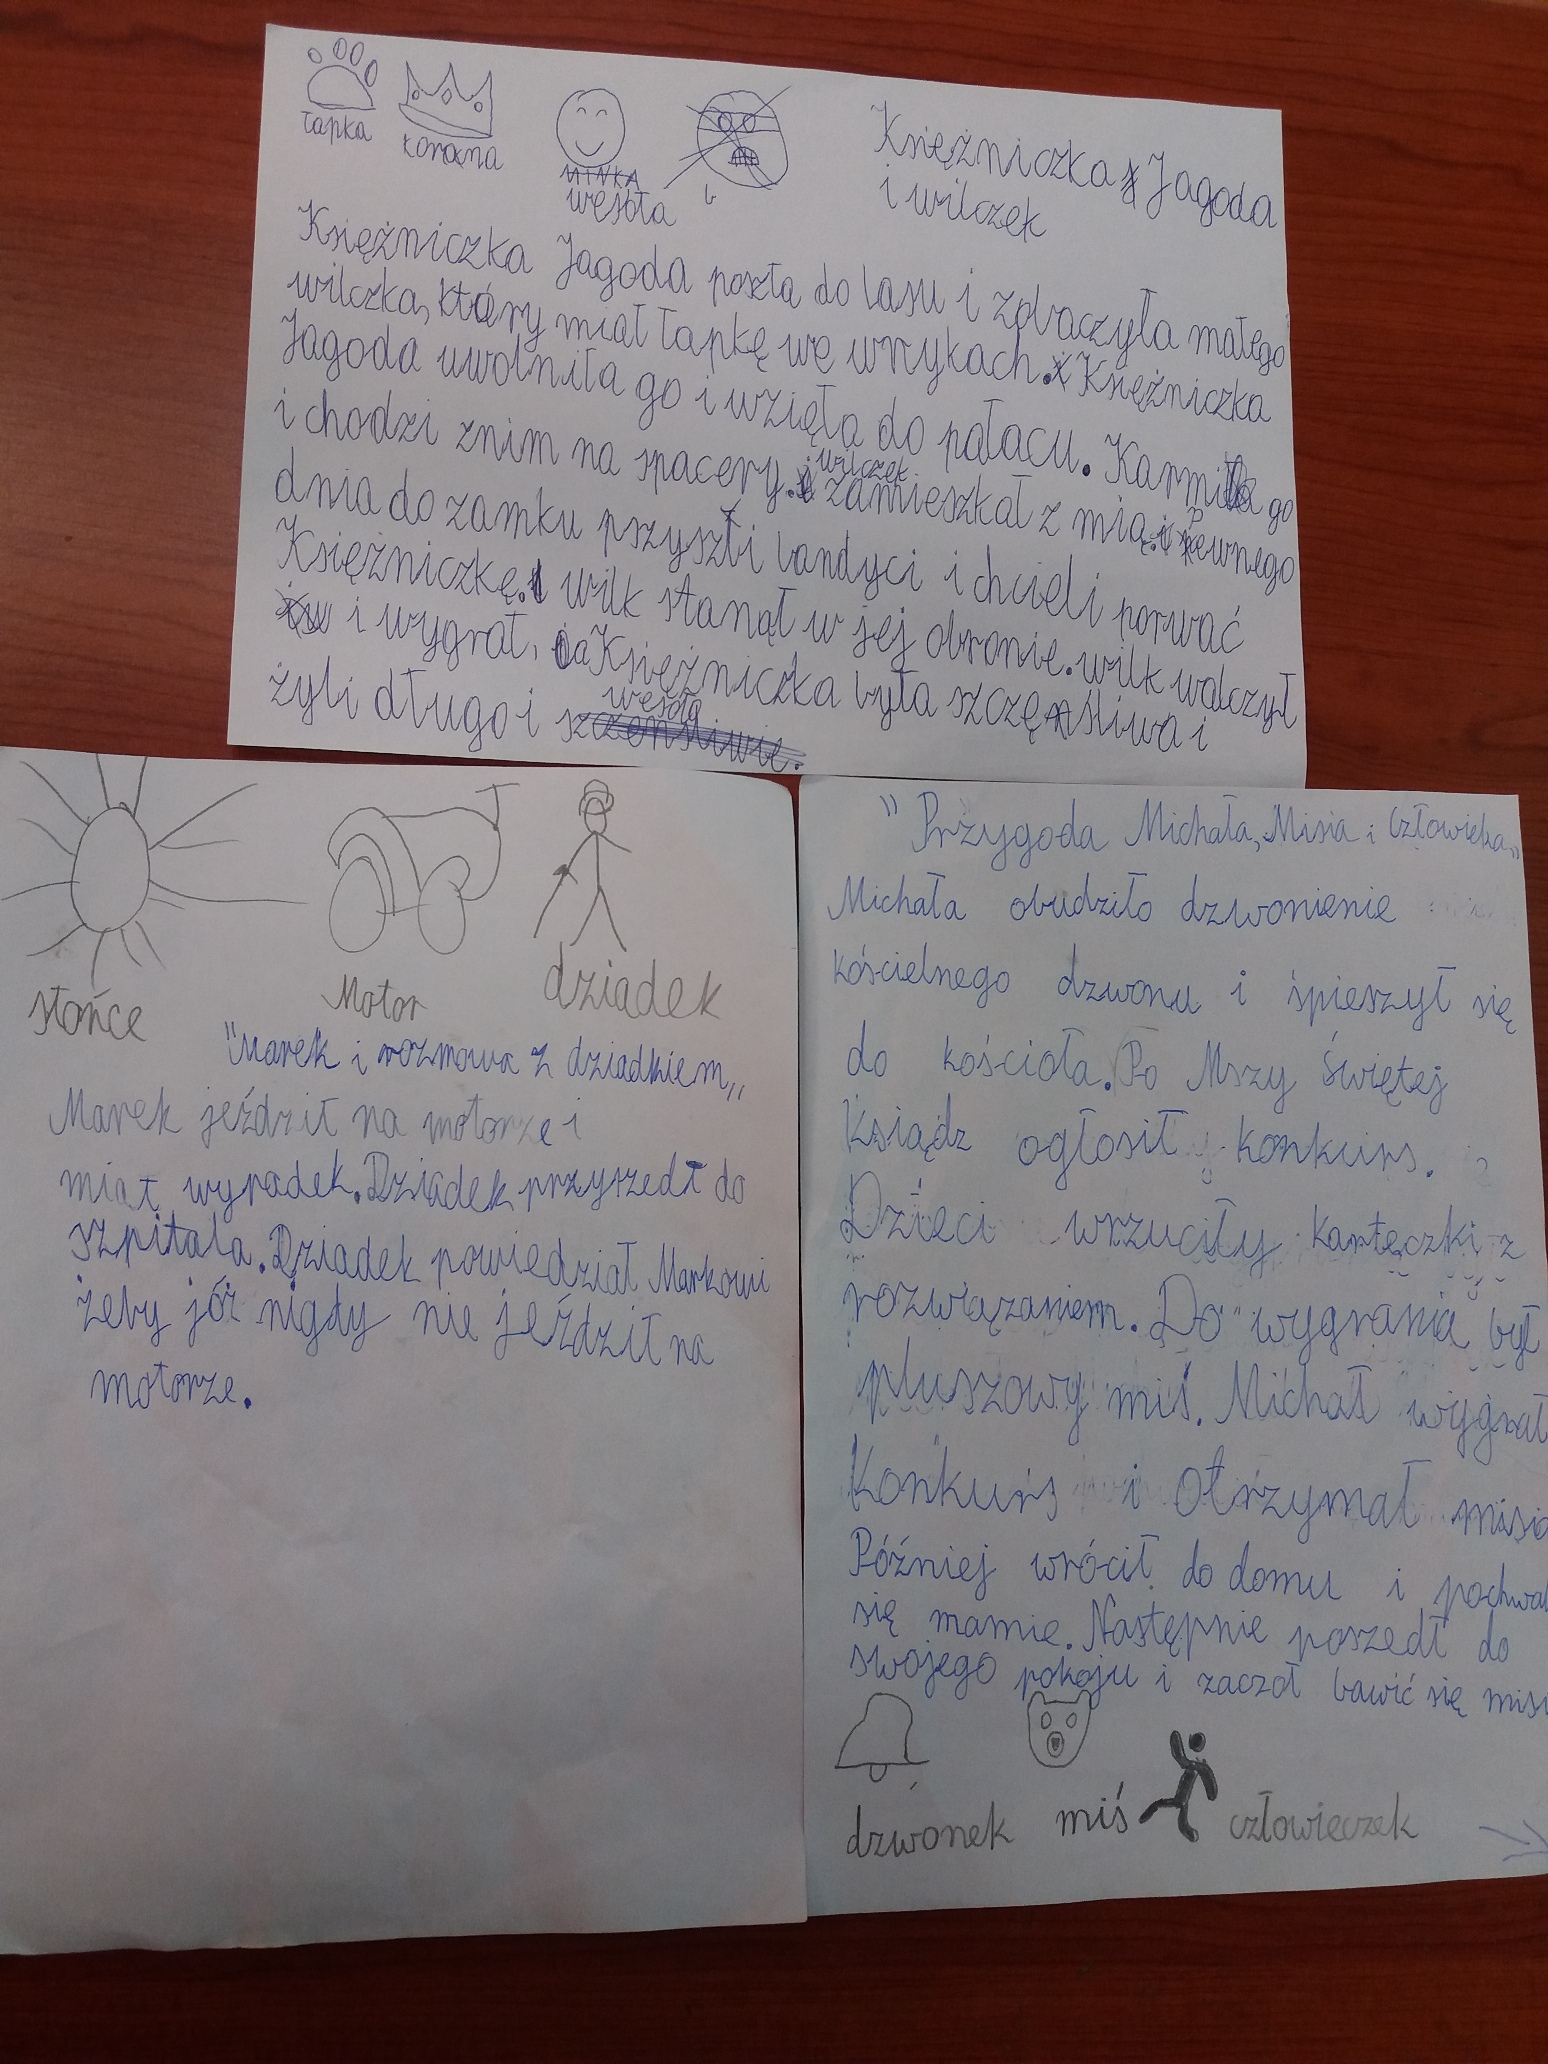 łapka korona wesoła
Księżniczka Jagoda
i wilczek
Księżniczka Jagoda poszła do lasu i zobaczyła małego
wilczka, który miał łapkę we wnykach. Księżniczka
Jagoda uwolniła go i wzięła do pałacu. Karmiła go
i chodzi znim na spacery. wilczek zamieszkał z nią. Pewnego
dnia do zamku przyszłi bandyci i chcieli porwać
Księżniczkę. wilk stanął w jej obronie. wilk walczył
i wygrał, a Księżniczka była szczęśliwa i
żyli długo i wesoło
słońce Motor dziadek
"Marek i rozmowa z dziadkiem„
Marek jeździł na motorze i
miał wypadek. Dziadek przyszedł do
szpitala. Dziadek powiedział Markowi
żeby jóż nigdy nie jeździł na
motorze.
"Przygoda Michała, Misia i Człowieka„
Michała obudziło dzwonienie
kościelnego dzwonu i śpieszył się
do kościoła. Po Mszy Świętej
Ksiądz ogłosił konkurs.
Dzieci wrzuciły karteczki z
rozwiązaniem. Do wygrania był
pluszowy miś. Michał wygrał
Konkurs i otrzymał misia
Później wrócił do domu i pochwal
się mamie. Następnie poszedł do
swojego pokoju i zaczoł bawić się misi
dzwonek miś człowieczek